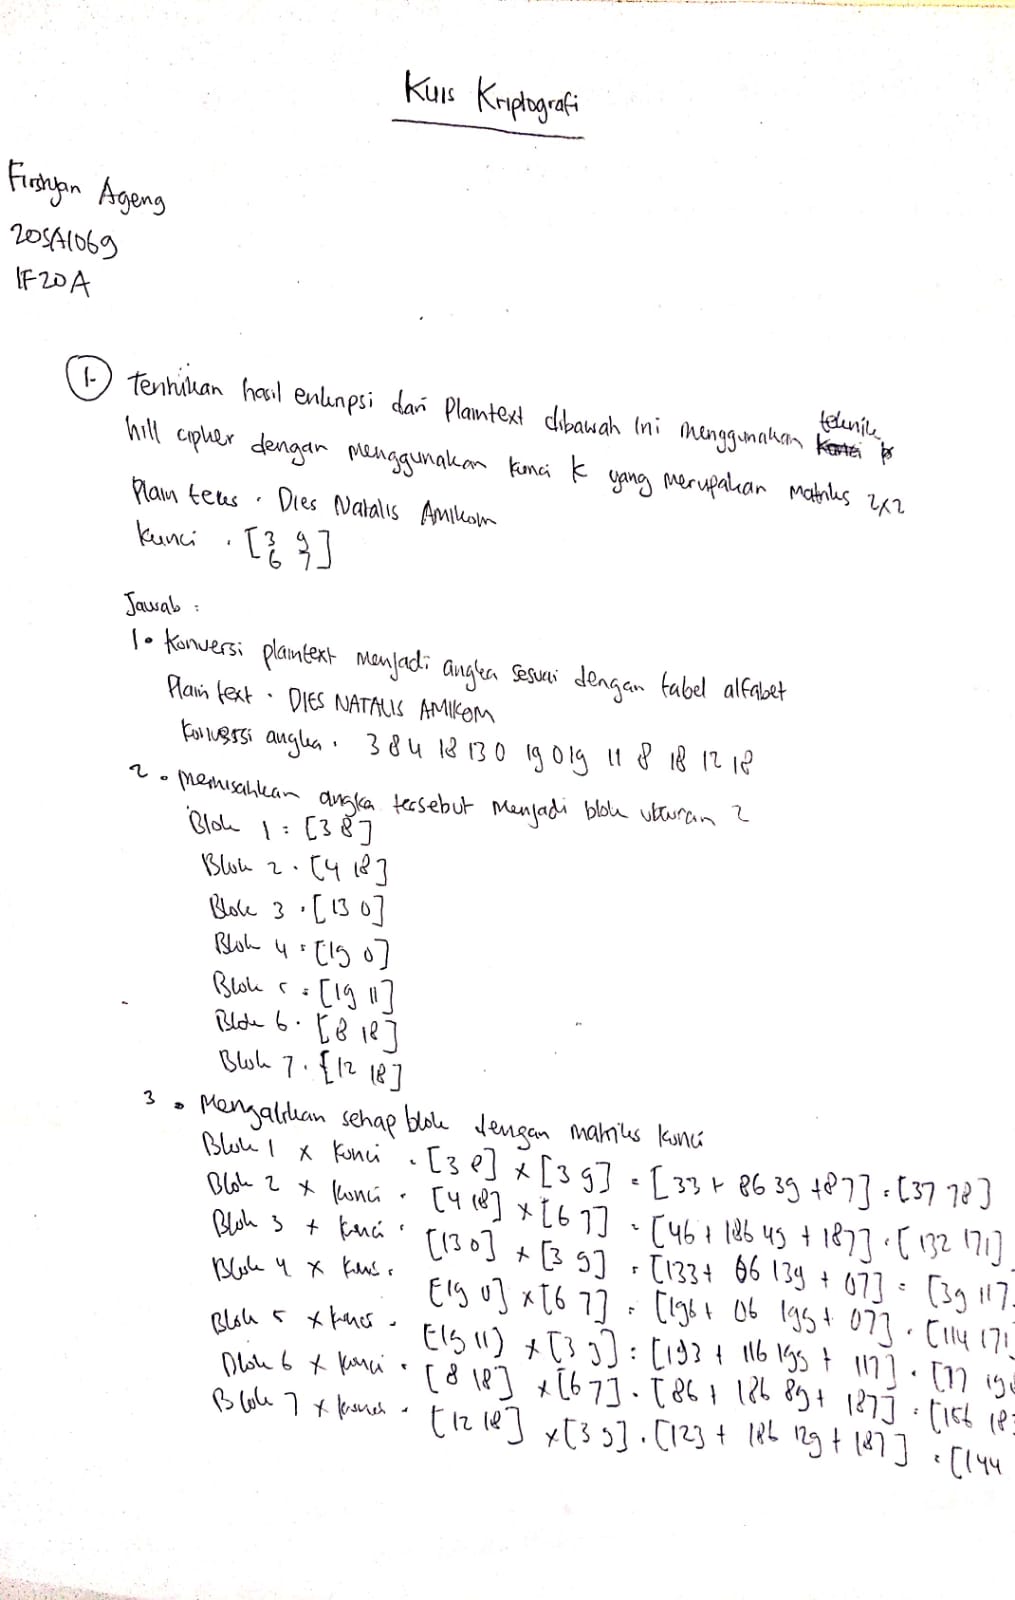 Kuis Kriptografi
Firshyan Ageng
20SA1069
IF20A
1. Tentukan hasil enkripsi dari Plaintext dibawah ini menggunakan teknik
hill cipher dengan menggunakan kunci K yang merupakan matriks 2x2
Plain teks . Dies Natalis Amikom
kunci . [3 9
6 7]
Jawab :
1. Konversi plaintext menjadi angka sesuai dengan tabel alfabet
Plain text . DIES NATALIS AMIKOM
Konversi angka . 3 8 4 18 13 0 19 0 19 11 8 18 12 18
2. memisahkan angka tersebut menjadi blok ukuran 2
Blok 1 = [3 8]
Blok 2 . [4 18]
Blok 3 . [13 0]
Blok 4 = [19 0]
Blok 5 = [19 11]
Blok 6 . [8 18]
Blok 7 . [12 18]
3. Mengalikan setiap blok dengan matriks kunci
Blok 1 x kunci . [3 8] x [3 9] = [33 + 86 39 + 87] = [37 78]
Blok 2 x kunci . [4 18] x [6 7] = [46 + 186 49 + 187] . [132 171]
Blok 3 x kunci . [13 0] x [3 9] = [133 + 06 139 + 07] = [39 117
Blok 4 x kunci . [19 0] x [6 7] = [196 + 06 199 + 07] . [114 171
Blok 5 x kunci . [19 11] x [3 9] = [193 + 116 199 + 117] . [77
Blok 6 x kunci . [8 18] x [6 7] . [86 + 186 89 + 187] = [156 18
Blok 7 x kunci . [12 18] x [3 9] . [123 + 186 129 + 187] = [144